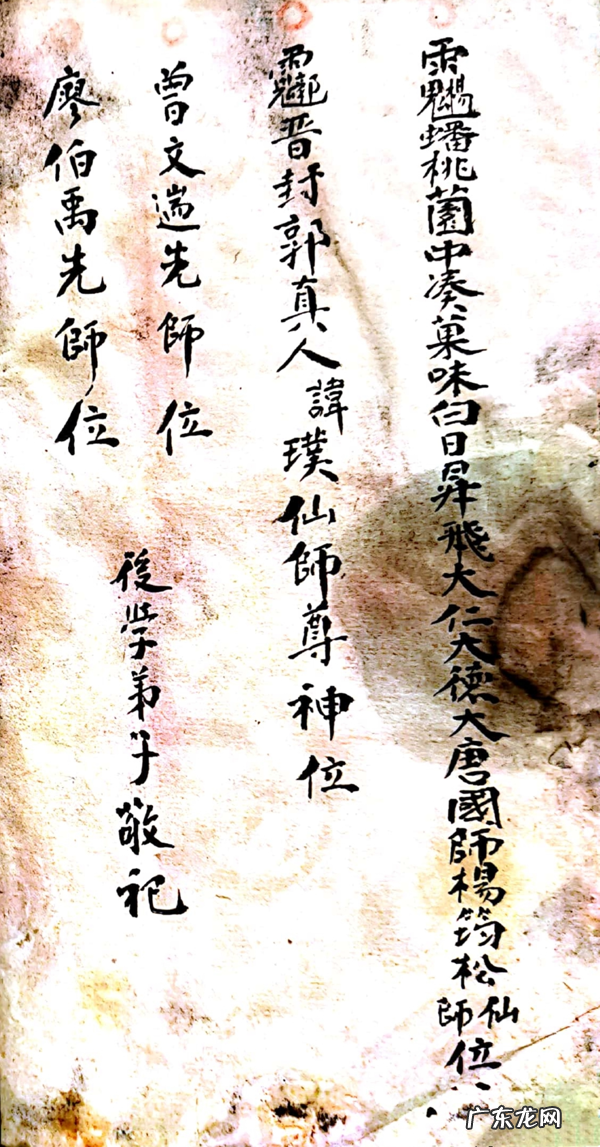 蟠桃薗中凑菓味白日昇飛大仁大德大唐國師楊筠松仙師位
晋封郭真人諱璞仙師尊神位
曾文遄先師位
廖伯禹先師位
後學弟子敬祀
广东龙网